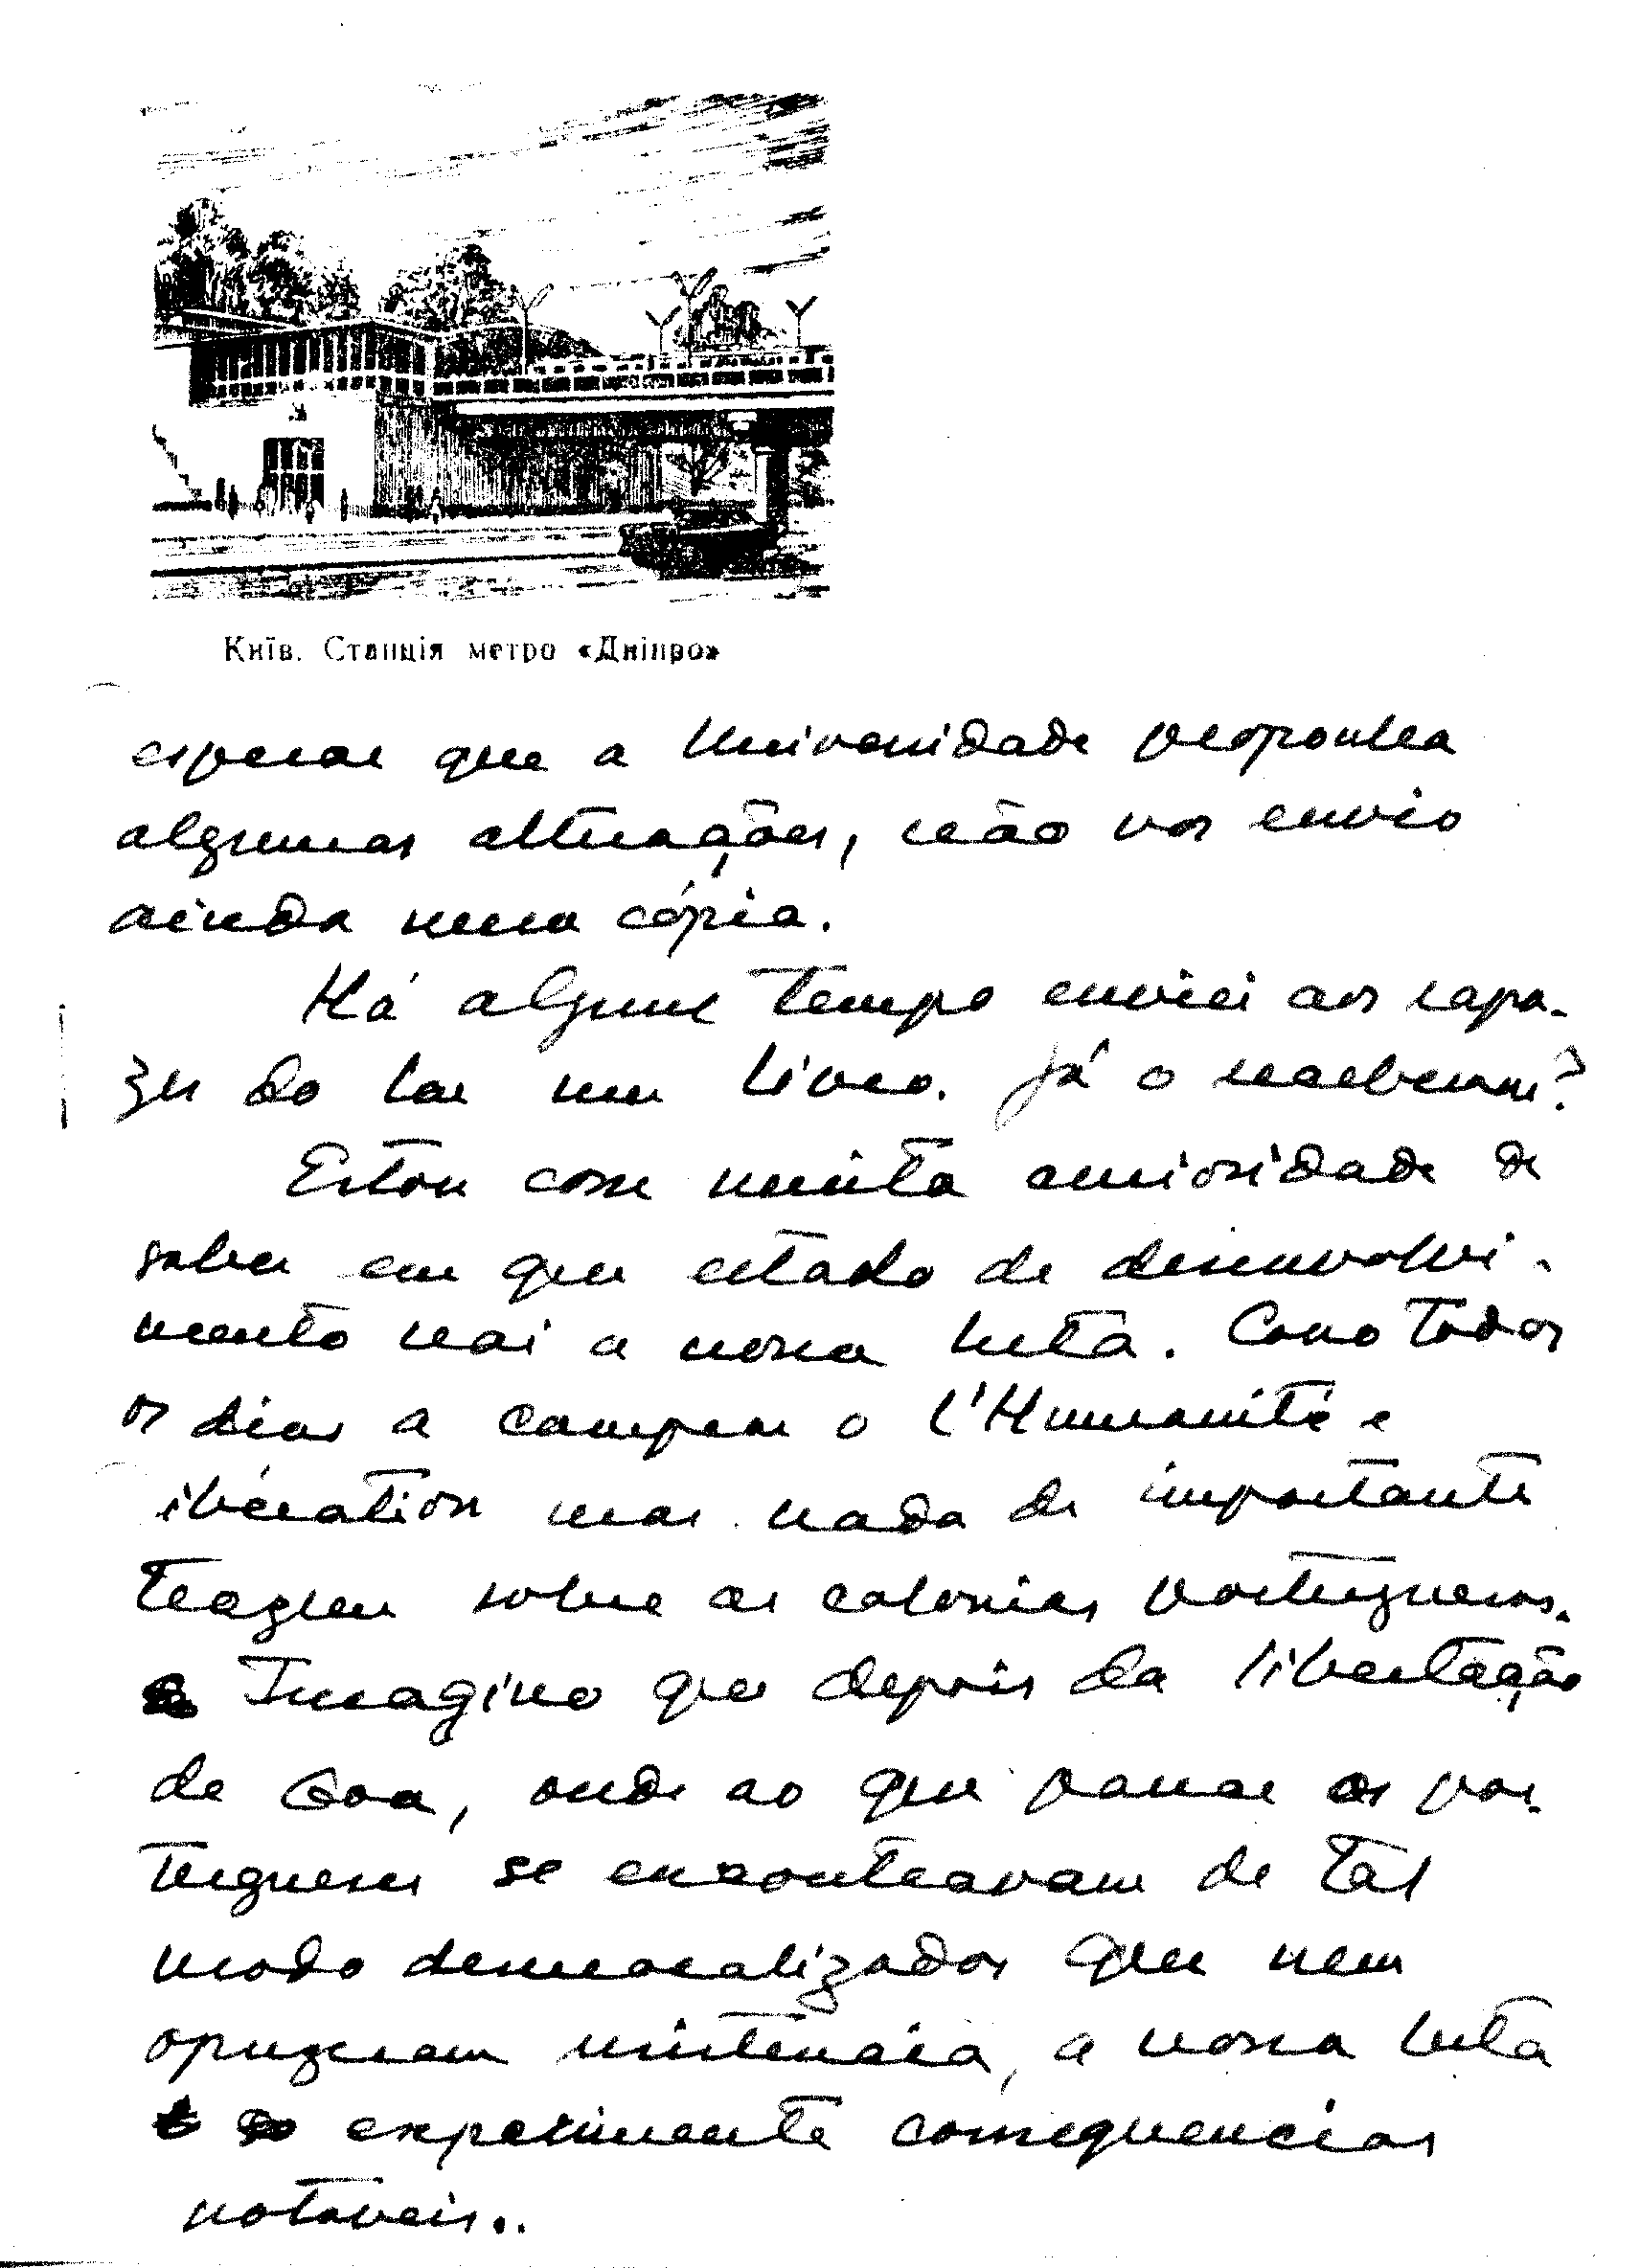 Київ. Станція метро «Дніпро»
esperar que a Universidade proponha
algumas alterações, não vos envio
ainda uma cópia.
Há algum tempo enviei aos rapa-
zes do lar um livro. Já o receberam?
Estou com muita curiosidade de
saber em que estado de desenvolvi-
mento vai a nossa luta. Como todos
os dias a comprar o l'Humanité e
ibération mas nada de importante
tragem sobre as colonias portuguesas.
Imagino que depois da libertação
de Goa, onde ao que parece os por-
tugueses se encontravam de tal
modo desmoralizados que nem
opuzeram resistencia, a nossa luta
experimente consequencias
notaveis..